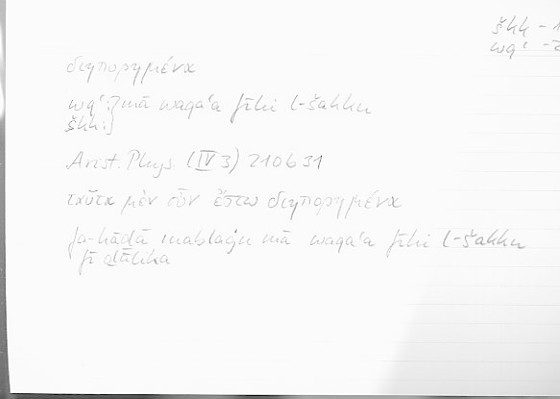 škk – 1
wqʿ – 2
διηπορημένα
wqʿ:} mā waqaʿa fīhi l-šakku
škk:}
Arist. Phys. (IV 3) 210b31
ταῦτα μὲν οὖν ἔστω διηπορημένα
fa-hāḏā mablaġu mā waqaʿa fīhi l-šakku
fī ḏālika